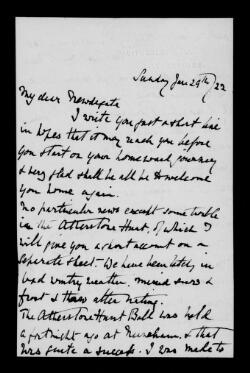 Sunday Jan 29th/22
My dear Newdigate
I write you just a short line
in hopes that it may reach you before
you start on your homeward journey
& very glad shall we all be to welcome
you home again.
No particular news except some trouble
in the Atherstone Hunt, of which I
will give you a short account on a
separate sheet. We have been lately in
bad wintry weather, mixed snows &
frost & thaws after
The Atherstone Hunt Ball was held
a fortnight ago at & that
was quite a success. I was made to